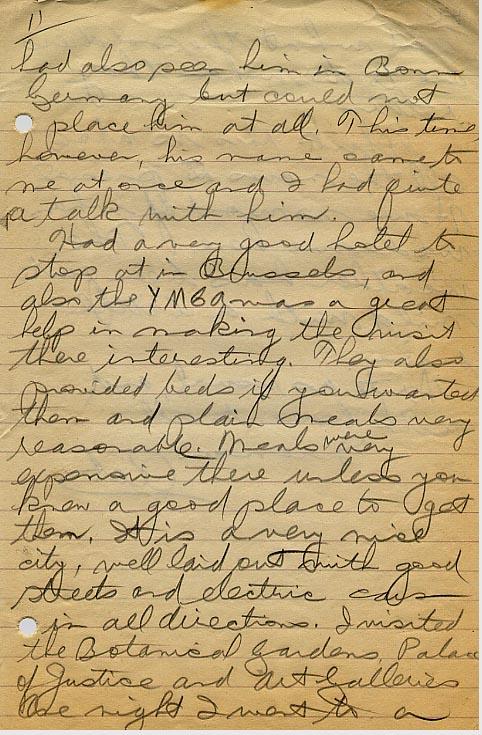 11
had also seen him in Bonn
Germany but could not
place him at all. This time
however, his name came to
me at once and I had quite
a talk with him.
Had a very good hotel to
stop at in Brussels, and
also the YMCA was a great
help in making the visit
there interesting. They also
provided beds if you wanted
them and plain meals very
reasonable. Meals were very
expensive there unless you
knew a good place to get
them. It is a very nice
city, well laid out with good
streets and electric cars
in all directions. I visited
the Botanical Gardens, Palace
of Justice and Art Galleries
One night I went to a